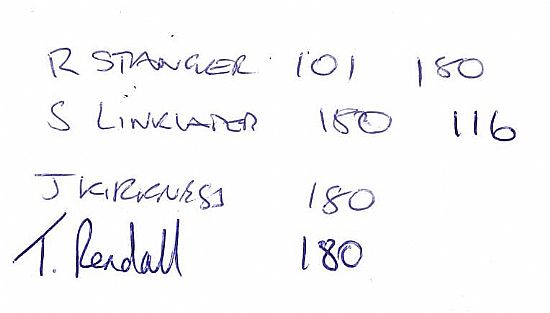 R STANGER 101 180
S LINKLATER 180 116
J KIRKNESS 180
T. Rendall 180